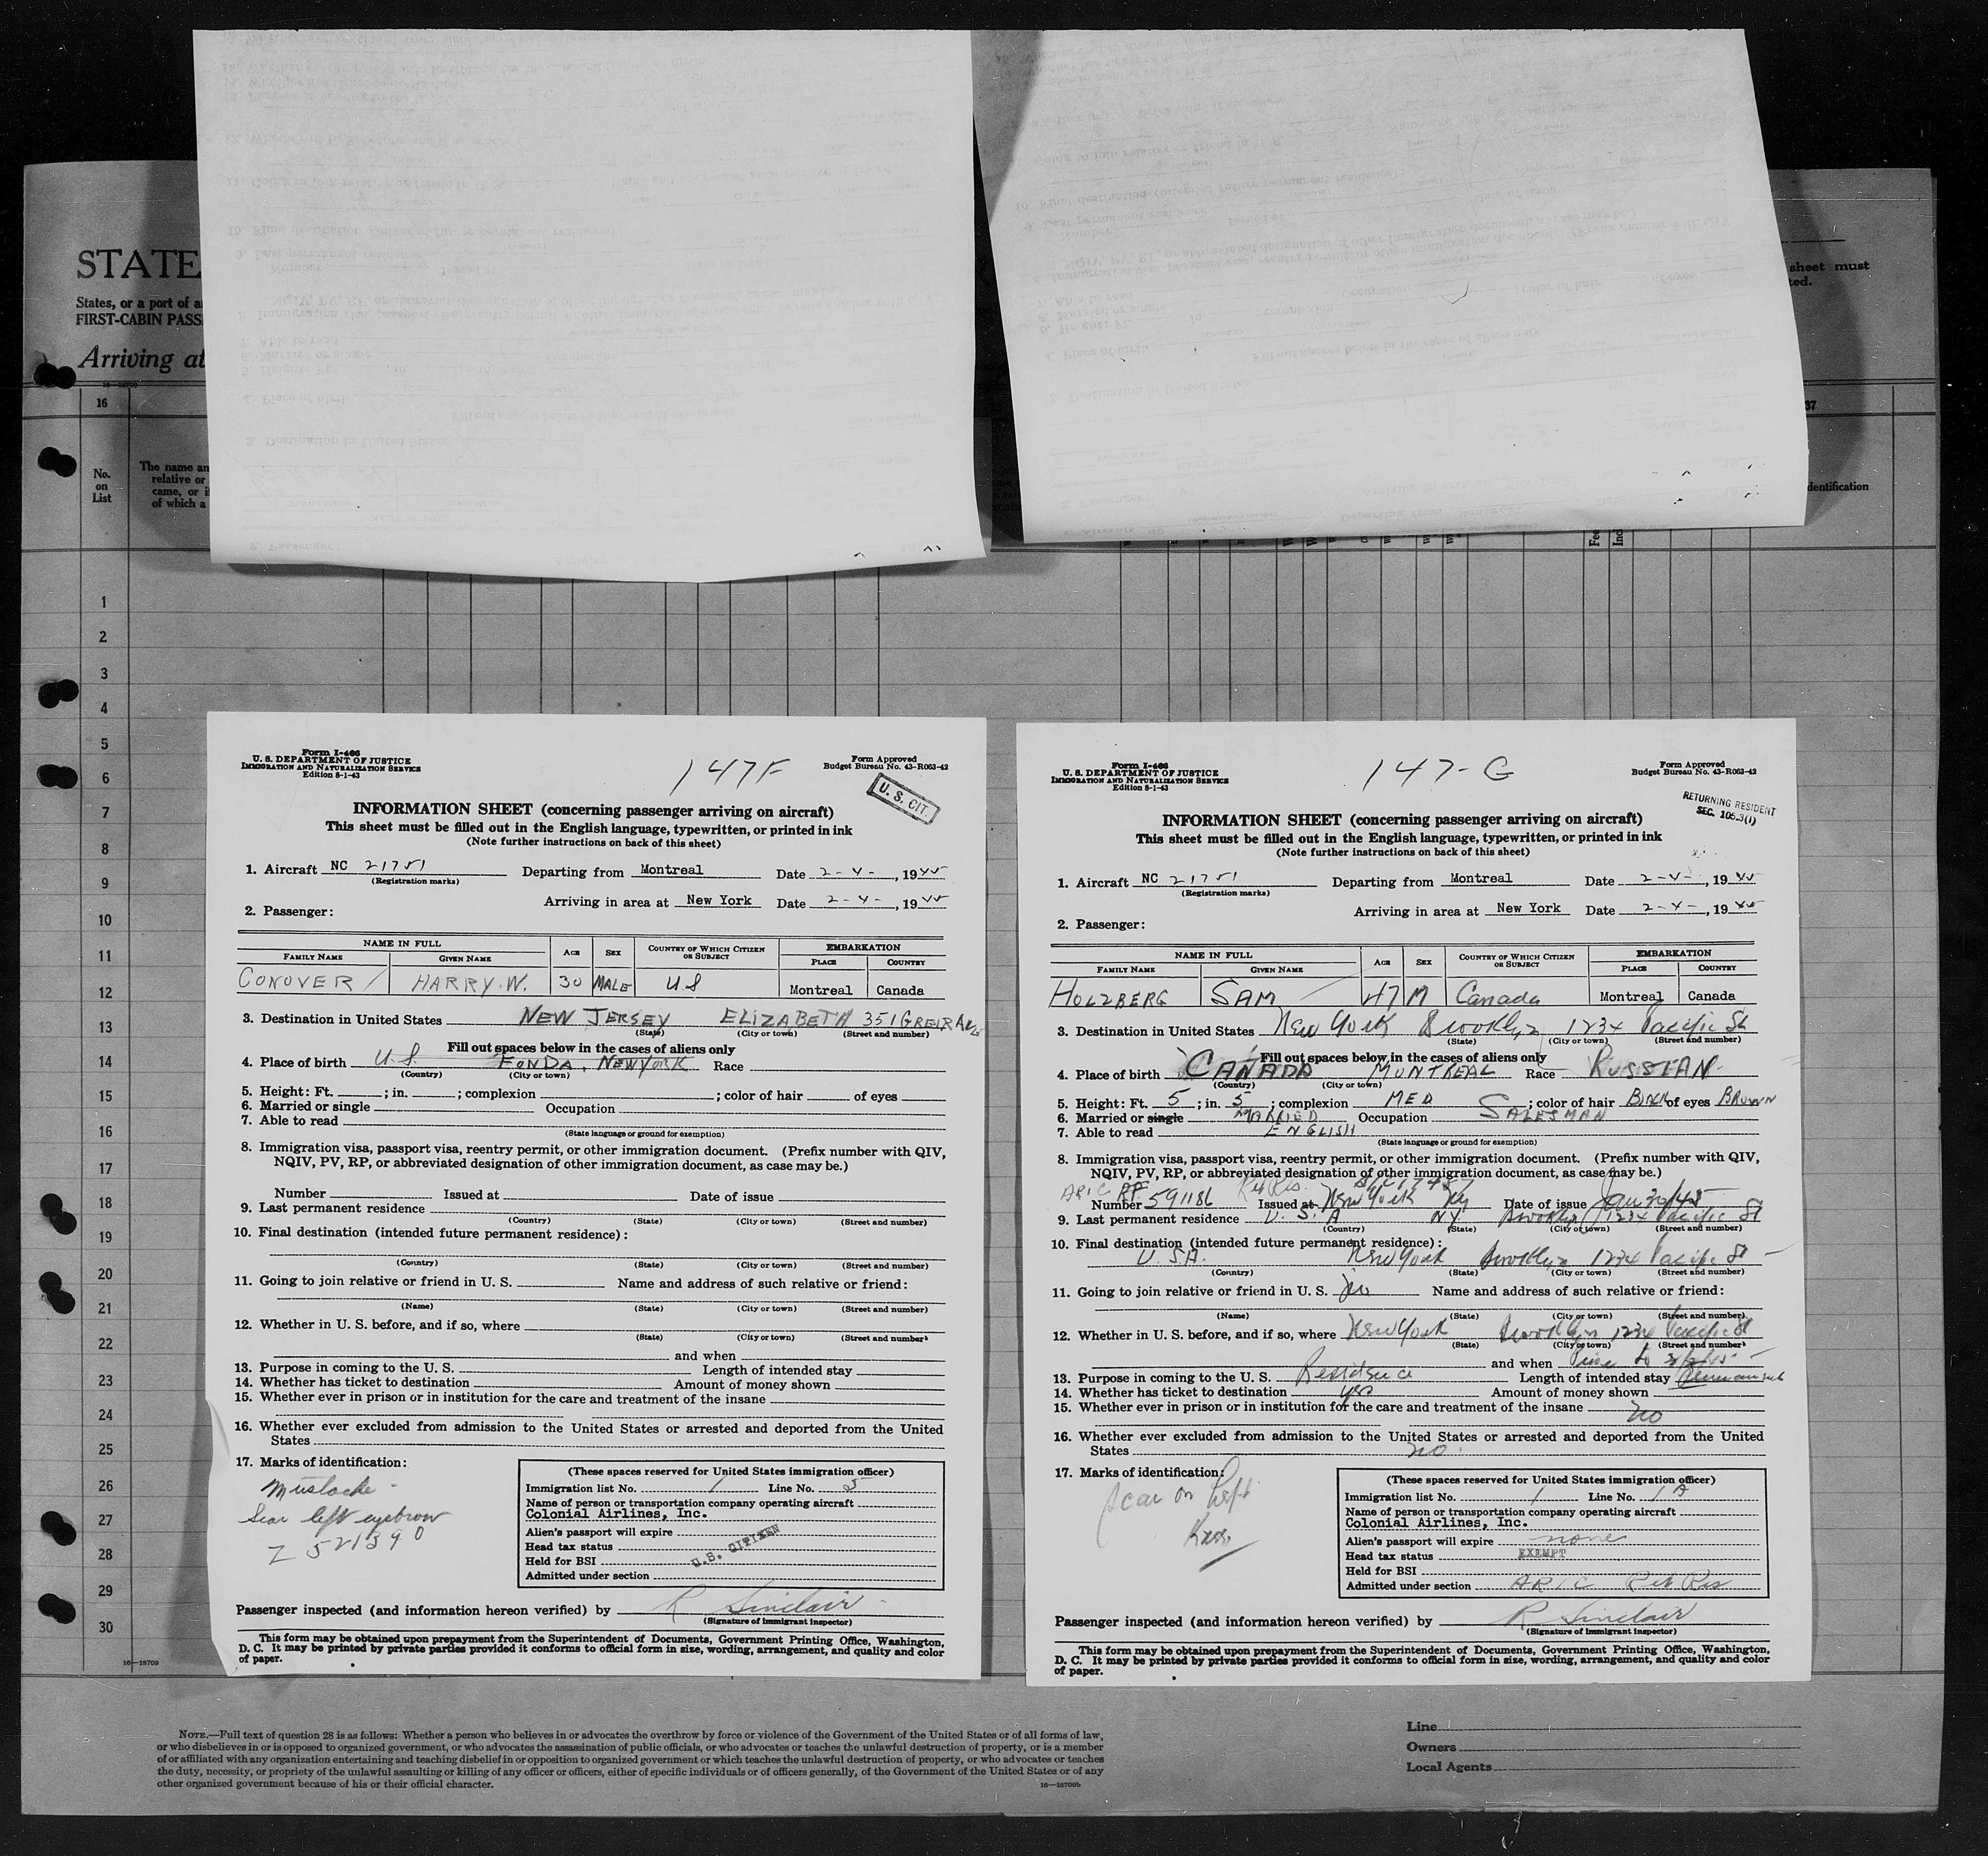 STATE
States, or a port of a
FIRST-CABIN PASS
Arriving at
sheet must
ted.
16—18709
16
37
No.
on
List
The name an
relative or
came, or i
of which a
dentification
1
2
3
4
5
6
7
8
9
10
11
12
13
14
15
16
17
18
19
20
21
22
23
24
25
26
27
28
29
30
16—18709
Form I-466
U. S. DEPARTMENT OF JUSTICE
IMMIGRATION AND NATURALIZATION SERVICE
Edition 8-1-43
147F
Form Approved
Budget Bureau No. 43-R063-42
U. S. CIT.
INFORMATION SHEET (concerning passenger arriving on aircraft)
This sheet must be filled out in the English language, typewritten, or printed in ink
(Note further instructions on back of this sheet)
1. Aircraft NC 21751 Departing from Montreal Date 2-4-, 1945
(Registration marks)
Arriving in area at New York Date 2-4-, 1945
2. Passenger:
NAME IN FULL AGE SEX COUNTRY OF WHICH CITIZEN OR SUBJECT EMBARKATION
FAMILY NAME GIVEN NAME PLACE COUNTRY
CONOVER / HARRY. W. 30 MALE U S Montreal Canada
3. Destination in United States NEW JERSEY ELIZABETH 351
(State) (City or town) (Street and number)
Fill out spaces below in the cases of aliens only
4. Place of birth U. S FONDA, NEW YORK Race
(Country) (City or town)
5. Height: Ft. ; in. ; complexion ; color of hair of eyes
6. Married or single Occupation
7. Able to read
(State language or ground for exemption)
8. Immigration visa, passport visa, reentry permit, or other immigration document. (Prefix number with QIV,
NQIV, PV, RP, or abbreviated designation of other immigration document, as case may be.)
Number Issued at Date of issue
9. Last permanent residence
(Country) (State) (City or town) (Street and number)
10. Final destination (intended future permanent residence):
(Country) (State) (City or town) (Street and number)
11. Going to join relative or friend in U. S. Name and address of such relative or friend:
(Name) (State) (City or town) (Street and number)
12. Whether in U. S. before, and if so, where
(State) (City or town) (Street and number)
and when
13. Purpose in coming to the U. S. Length of intended stay
14. Whether has ticket to destination Amount of money shown
15. Whether ever in prison or in institution for the care and treatment of the insane
16. Whether ever excluded from admission to the United States or arrested and deported from the United
States
17. Marks of identification:
Mustache -
Scar left eyebrow
Z 521390
(These spaces reserved for United States immigration officer)
Immigration list No. 1 Line No. 5
Name of person or transportation company operating aircraft
Colonial Airlines, Inc.
Alien's passport will expire
Head tax status
Held for BSI U.S. CITIZEN
Admitted under section
Passenger inspected (and information hereon verified) by R Sinclair
(Signature of immigrant inspector)
This form may be obtained upon prepayment from the Superintendent of Documents, Government Printing Office, Washington,
D. C. It may be printed by private parties provided it conforms to official form in size, wording, arrangement, and quality and color
of paper.
Form I-466
U. S. DEPARTMENT OF JUSTICE
IMMIGRATION AND NATURALIZATION SERVICE
Edition 8-1-43
147-G
Form Approved
Budget Bureau No. 43-R063-42
RETURNING RESIDENT
SEC. 105.3(1)
INFORMATION SHEET (concerning passenger arriving on aircraft)
This sheet must be filled out in the English language, typewritten, or printed in ink
(Note further instructions on back of this sheet)
1. Aircraft NC 21751 Departing from Montreal Date 2-4-, 1945
(Registration marks)
Arriving in area at New York Date 2-4-, 1945
2. Passenger:
NAME IN FULL AGE SEX COUNTRY OF WHICH CITIZEN OR SUBJECT EMBARKATION
FAMILY NAME GIVEN NAME PLACE COUNTRY
HOLZBERG SAM 47 M Canada Montreal Canada
3. Destination in United States New York Brooklyn 1234 Pacific St
(State) (City or town) (Street and number)
Fill out spaces below in the cases of aliens only
4. Place of birth CANADA MONTREAL Race RUSSIAN
(Country) (City or town)
5. Height: Ft. 5 ; in. 5 ; complexion MED ; color of hair BLACK of eyes BROWN
6. Married or single MARRIED Occupation SALESMAN
7. Able to read ENGLISH
(State language or ground for exemption)
8. Immigration visa, passport visa, reentry permit, or other immigration document. (Prefix number with QIV,
NQIV, PV, RP, or abbreviated designation of other immigration document, as case may be.)
ARIC RP Ret Res.
Number 591186 Issued at New York NY Date of issue Jan 30/45
9. Last permanent residence U. S. A NY. Brooklyn 1234 Pacific St
(Country) (State) (City or town) (Street and number)
10. Final destination (intended future permanent residence):
U. S. A. New York Brooklyn 1234 Pacific St
(Country) (State) (City or town) (Street and number)
11. Going to join relative or friend in U. S. Name and address of such relative or friend:
(Name) (State) (City or town) (Street and number)
12. Whether in U. S. before, and if so, where New York Brooklyn 1234 Pacific St
(State) (City or town) (Street and number)
and when Prior to
13. Purpose in coming to the U. S. Residence Length of intended stay Permanent
14. Whether has ticket to destination yes Amount of money shown
15. Whether ever in prison or in institution for the care and treatment of the insane no
16. Whether ever excluded from admission to the United States or arrested and deported from the United
States no.
17. Marks of identification:
Scar on left
Knee
(These spaces reserved for United States immigration officer)
Immigration list No. 1 Line No. 1 A
Name of person or transportation company operating aircraft
Colonial Airlines, Inc.
Alien's passport will expire none
Head tax status EXEMPT
Held for BSI
Admitted under section ARIC Ret Res
Passenger inspected (and information hereon verified) by R Sinclair
(Signature of immigrant inspector)
This form may be obtained upon prepayment from the Superintendent of Documents, Government Printing Office, Washington,
D. C. It may be printed by private parties provided it conforms to official form in size, wording, arrangement, and quality and color
of paper.
NOTE.—Full text of question 28 is as follows: Whether a person who believes in or advocates the overthrow by force or violence of the Government of the United States or of all forms of law,
or who disbelieves in or is opposed to organized government, or who advocates the assassination of public officials, or who advocates or teaches the unlawful destruction of property, or is a member
of or affiliated with any organization entertaining and teaching disbelief in or opposition to organized government or which teaches the unlawful destruction of property, or who advocates or teaches
the duty, necessity, or propriety of the unlawful assaulting or killing of any officer or officers, either of specific individuals or of officers generally, of the Government of the United States or of any
other organized government because of his or their official character.
16—18709b
Line
Owners
Local Agents